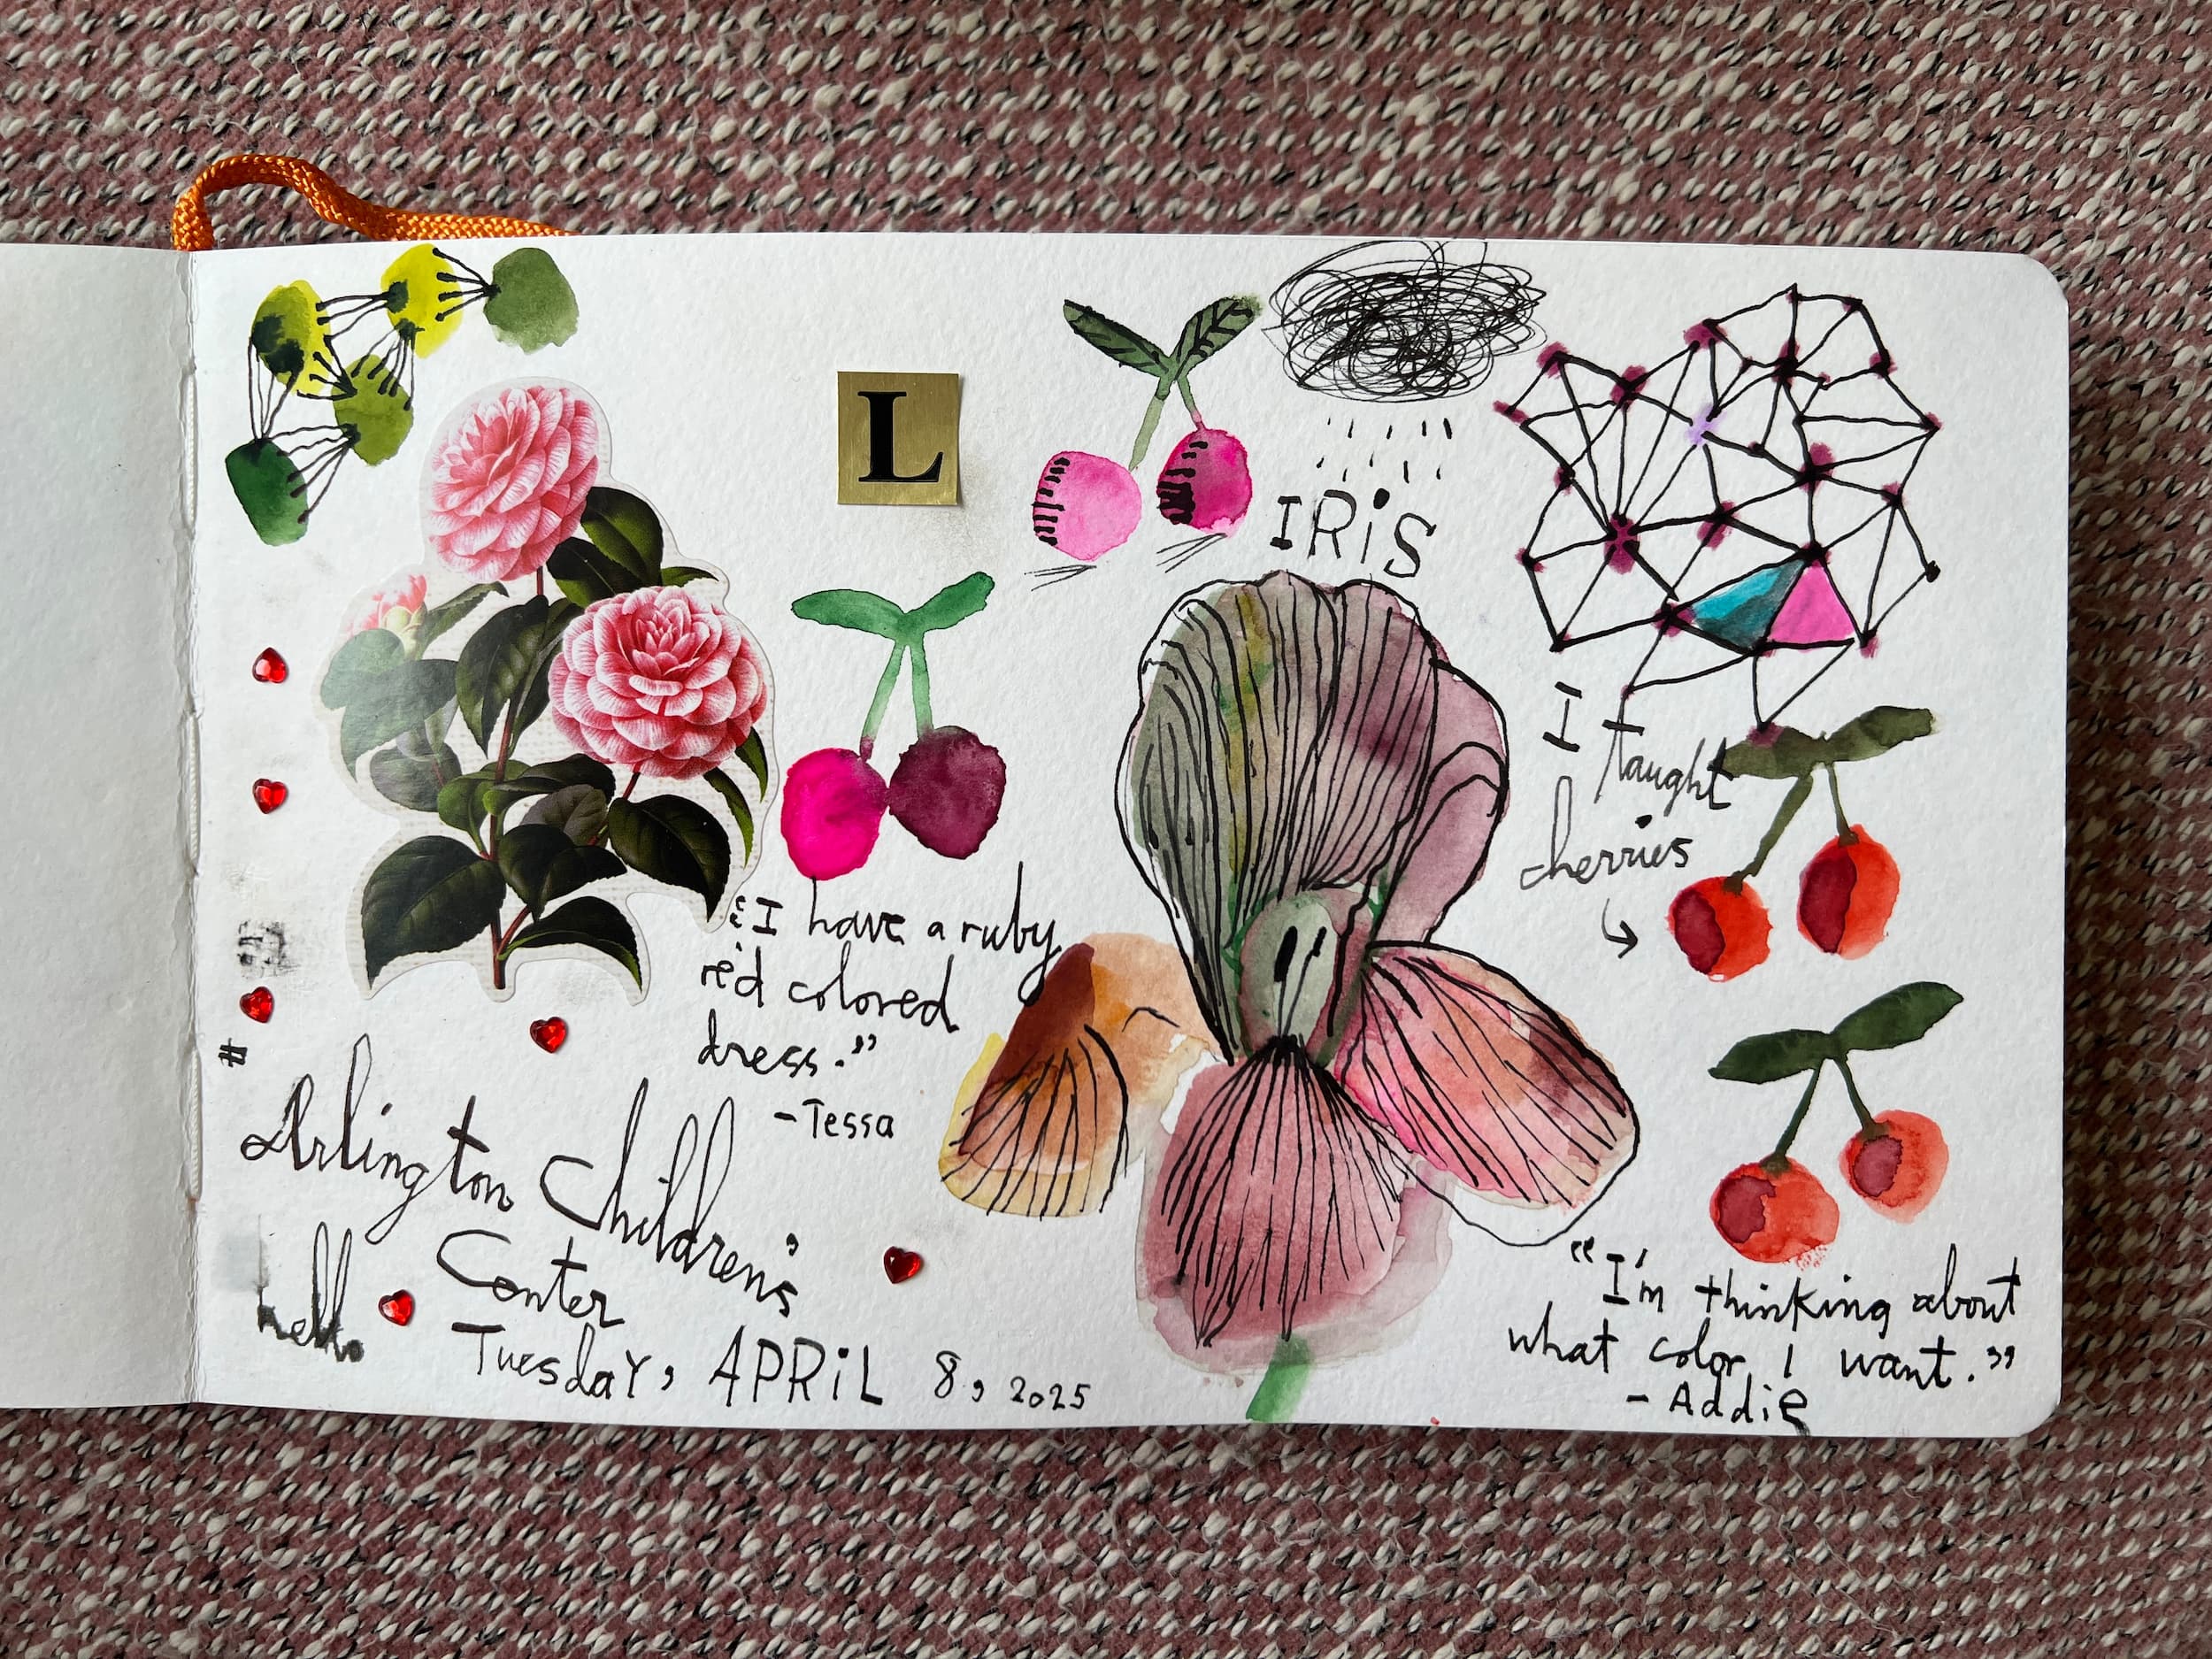 L
IRiS
I taught
cherries
"I have a ruby
red colored
dress."
-Tessa
#
Arlington Children's
Center
Tuesday, APRiL 8, 2025
hello
"I'm thinking about
what color I want."
- Addie